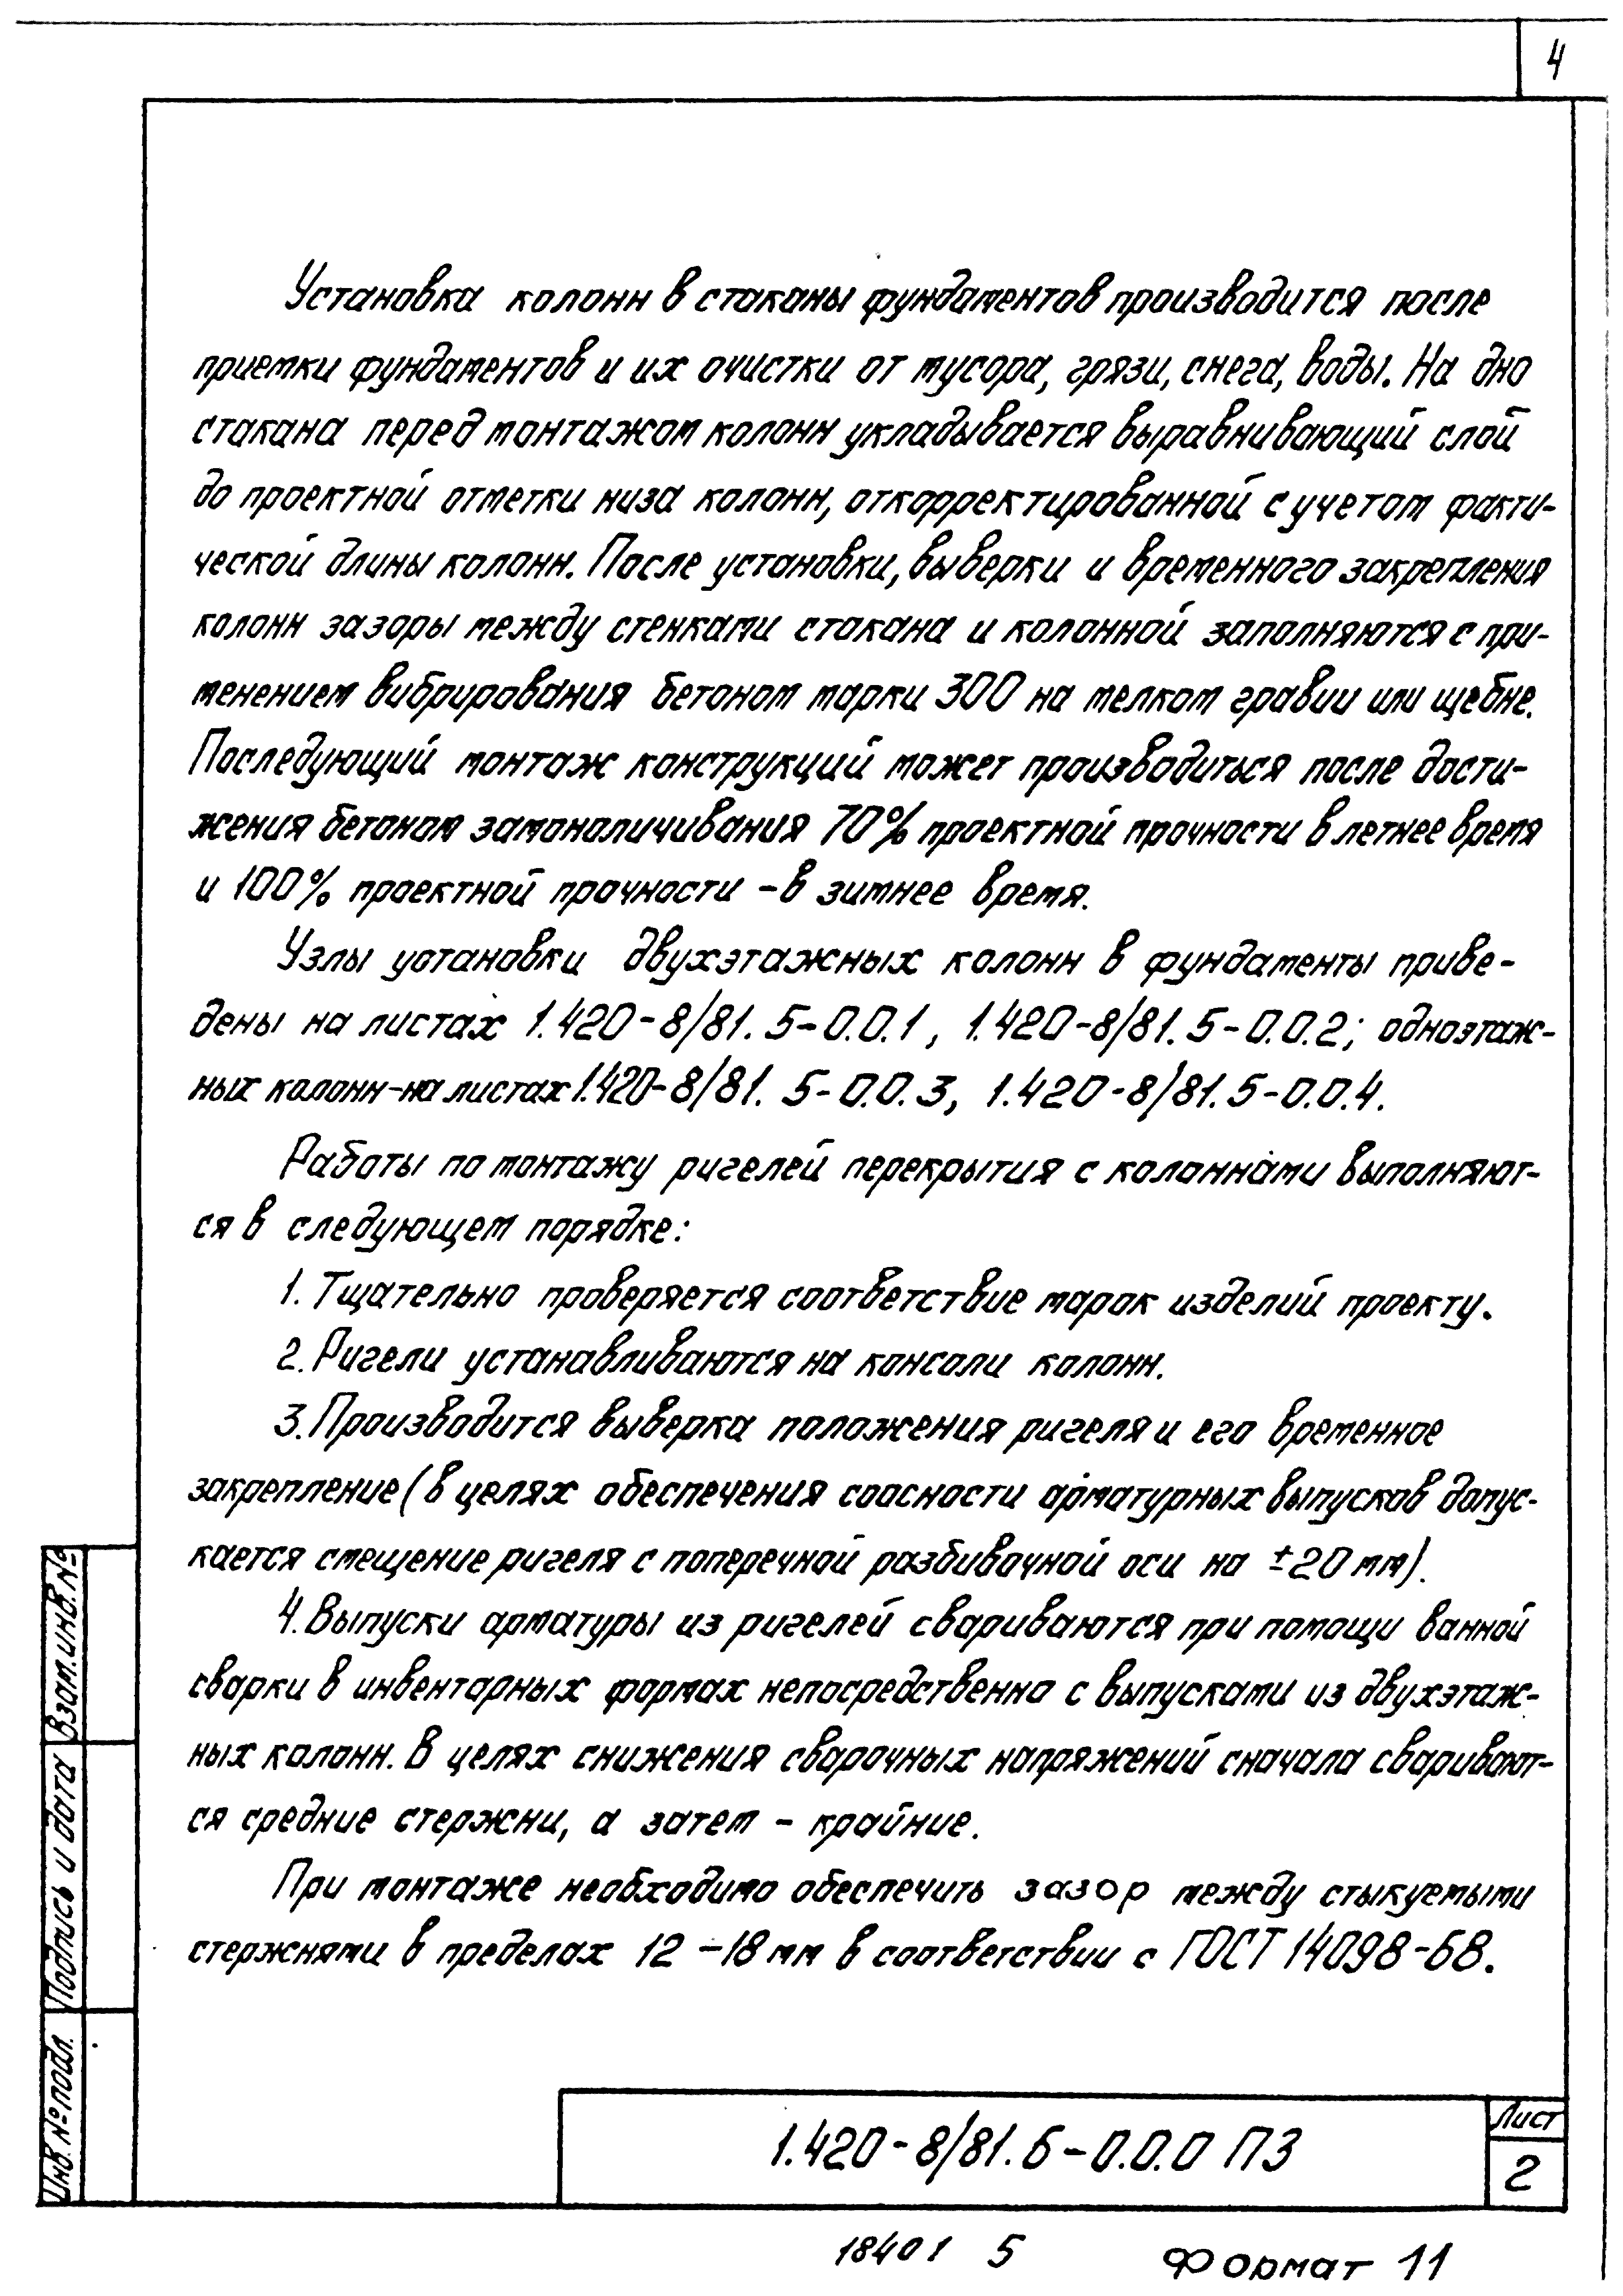 4
Установка колонн в стаканы фундаментов производится после
приемки фундаментов и их очистки от мусора, грязи, снега, воды. На дно
стакана перед монтажом колонн укладывается выравнивающий слой
до проектной отметки низа колонн, откорректированной с учетом факти-
ческой длины колонн. После установки, выверки и временного закрепления
колонн зазоры между стенками стакана и колонной заполняются с при-
менением вибрирования бетоном марки 300 на мелком гравии или щебне.
Последующий монтаж конструкций может производиться после дости-
жения бетоном замоноличивания 70% проектной прочности в летнее время
и 100% проектной прочности - в зимнее время.
Узлы установки двухэтажных колонн в фундаменты приве-
дены на листах 1.420-8/81.5-0.0.1, 1.420-8/81.5-0.0.2; одноэтаж-
ных колонн-на листах 1.420-8/81.5-0.0.3, 1.420-8/81.5-0.0.4.
Работы по монтажу ригелей перекрытия с колоннами выполняют-
ся в следующем порядке:
1. Тщательно проверяется соответствие марок изделий проекту.
2. Ригели устанавливаются на консоли колонн.
3. Производится выверка положения ригеля и его временное
закрепление (в целях обеспечения соосности арматурных выпусков допус-
кается смещение ригеля с поперечной разбивочной оси на ±20 мм).
4. Выпуски арматуры из ригелей свариваются при помощи ванной
сварки в инвентарных формах непосредственно с выпусками из двухэтаж-
ных колонн. В целях снижения сварочных напряжений сначала сваривают-
ся средние стержни, а затем - крайние.
При монтаже необходимо обеспечить зазор между стыкуемыми
стержнями в пределах 12-18 мм в соответствии с ГОСТ 14098-68.
Взам.инв.№
Подпись и дата
Инв.№подл.
1.420-8/81.6-0.0.0 ПЗ
Лист
2
18401 5
Формат 11